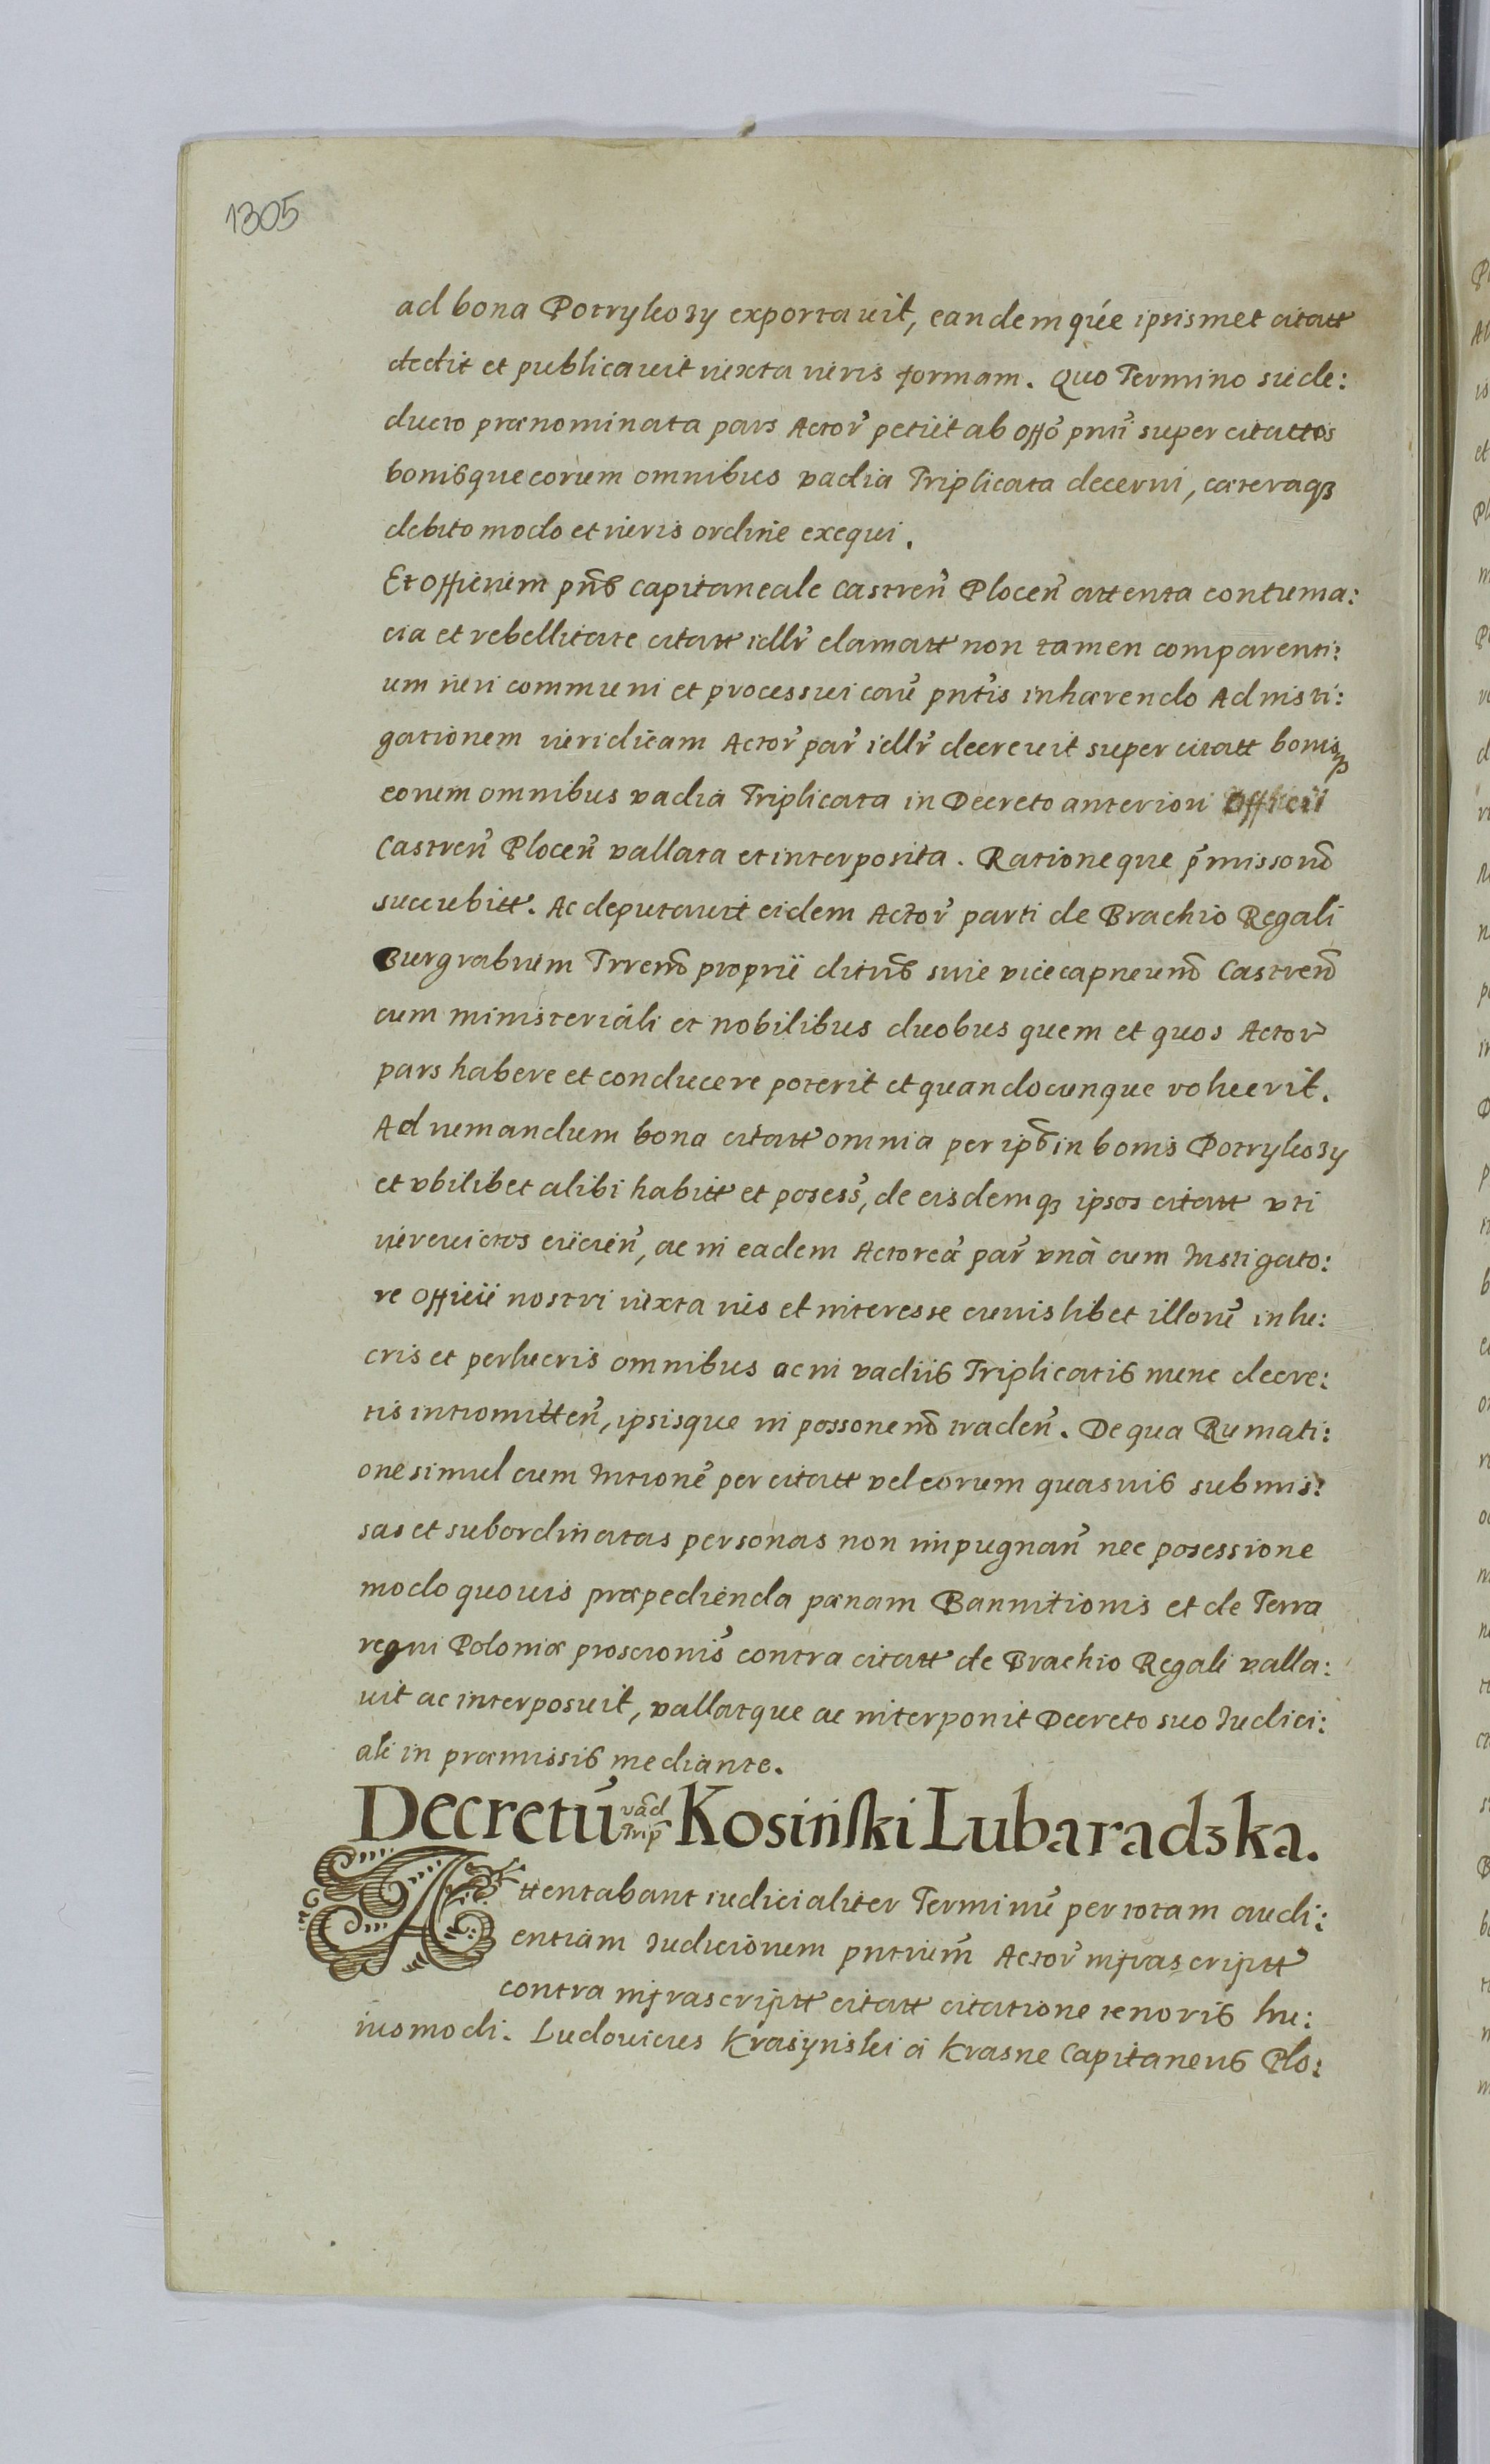 1305
ad bona Potrykozy exportavit, eandemque ipsismet citatt
dedit et publicavit iuxta iuris formam. Quo Termino sic de:
ducto prænominata pars Actor̃ petiit ab offõ pnti super citattos
bonisque eorum omnibus vadia Triplicata decerni, cæteraqꝫ
debito modo et iuris ordine exequi.
Et Officium pñs capitaneale castreñ Ploceñ attenta contuma:
cia et rebellitate citatt iclłr clamatt non tamen comparenti:
um iuri communi et processui caũ pntis inhærendo Ad insti:
gationem iuridicam Actor̃ par̃ iclłr decrevit super citatt bonisqꝫ
eorum omnibus vadia Triplicata in Decreto anteriori Officii
Castreñ Ploceñ vallata et interposita. Rationeque p̃missorũ
succubitt. Ac deputavit eidem Actor̃ parti de Brachio Regali
Burgrabium Trrem̃ proprii ditus sui vicecapneum̃ Castreñ
cum ministeriali et nobilibus duobus quem et quos Actor̃
pars habere et conducere poterit et quandocunque voluerit.
Ad rumandum bona citatt omnia per ip̃s in bonis Potrykozy
et vbilibet alibi habitt et posess̃, de eisdemqꝫ ipsos citatt vti
iurevictos eiicieñ, ac in eadem Actoreã par̃ vnà cum Instigato:
re Officii nostri iuxta ius et interesse cuiuslibet illorũ in lu:
cris et perlucris omnibus ac in vadiis Triplicatis nunc decre:
tis intromitteñ, ipsisque in possonem̃ tradeñ. De qua Rumati:
one simul cum Intronẽ per citatt vel eorum quasvis submis:
sas et subordinatas personas non impugnañ nec posessione
modo quovis præpedienda pænam Bannitionis et de Terra
regni Poloniæ proscronis̃ contra citatt de Brachio Regali valla:
vit ac interposuit, vallatque ac interponit Decreto suo Iudici:
ali in præmissis mediante.
Decretũ vãd trip̃ Kosińſki Lubaradzka.
Attentabant iudicialiter Terminũ per totam audi:
entiam Iudicionem pntium̃ Actor̃ infrascriptt
contra infrascriptt citatt citatione tenoris hu:
iusmodi. Ludovicus Krasiynski a Krasne Capitaneus Plo: